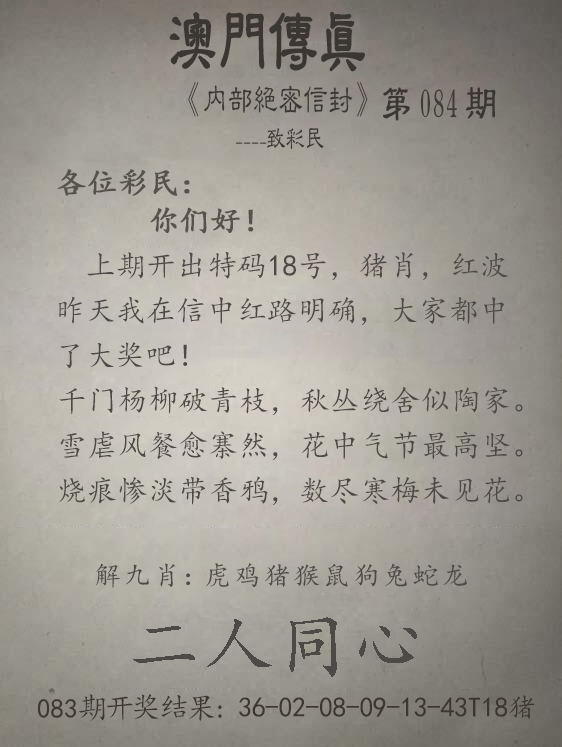 澳門傳真
《内部絕密信封》第084期
----致彩民
各位彩民：
你们好！
上期开出特码18号，猪肖，红波
昨天我在信中红路明确，大家都中
了大奖吧！
千门杨柳破青枝，秋丛绕舍似陶家。
雪虐风餐愈寨然，花中气节最高坚。
烧痕惨淡带香鸦，数尽寒梅未见花。
解九肖：虎鸡猪猴鼠狗兔蛇龙
二人同心
083期开奖结果：36-02-08-09-13-43T18猪